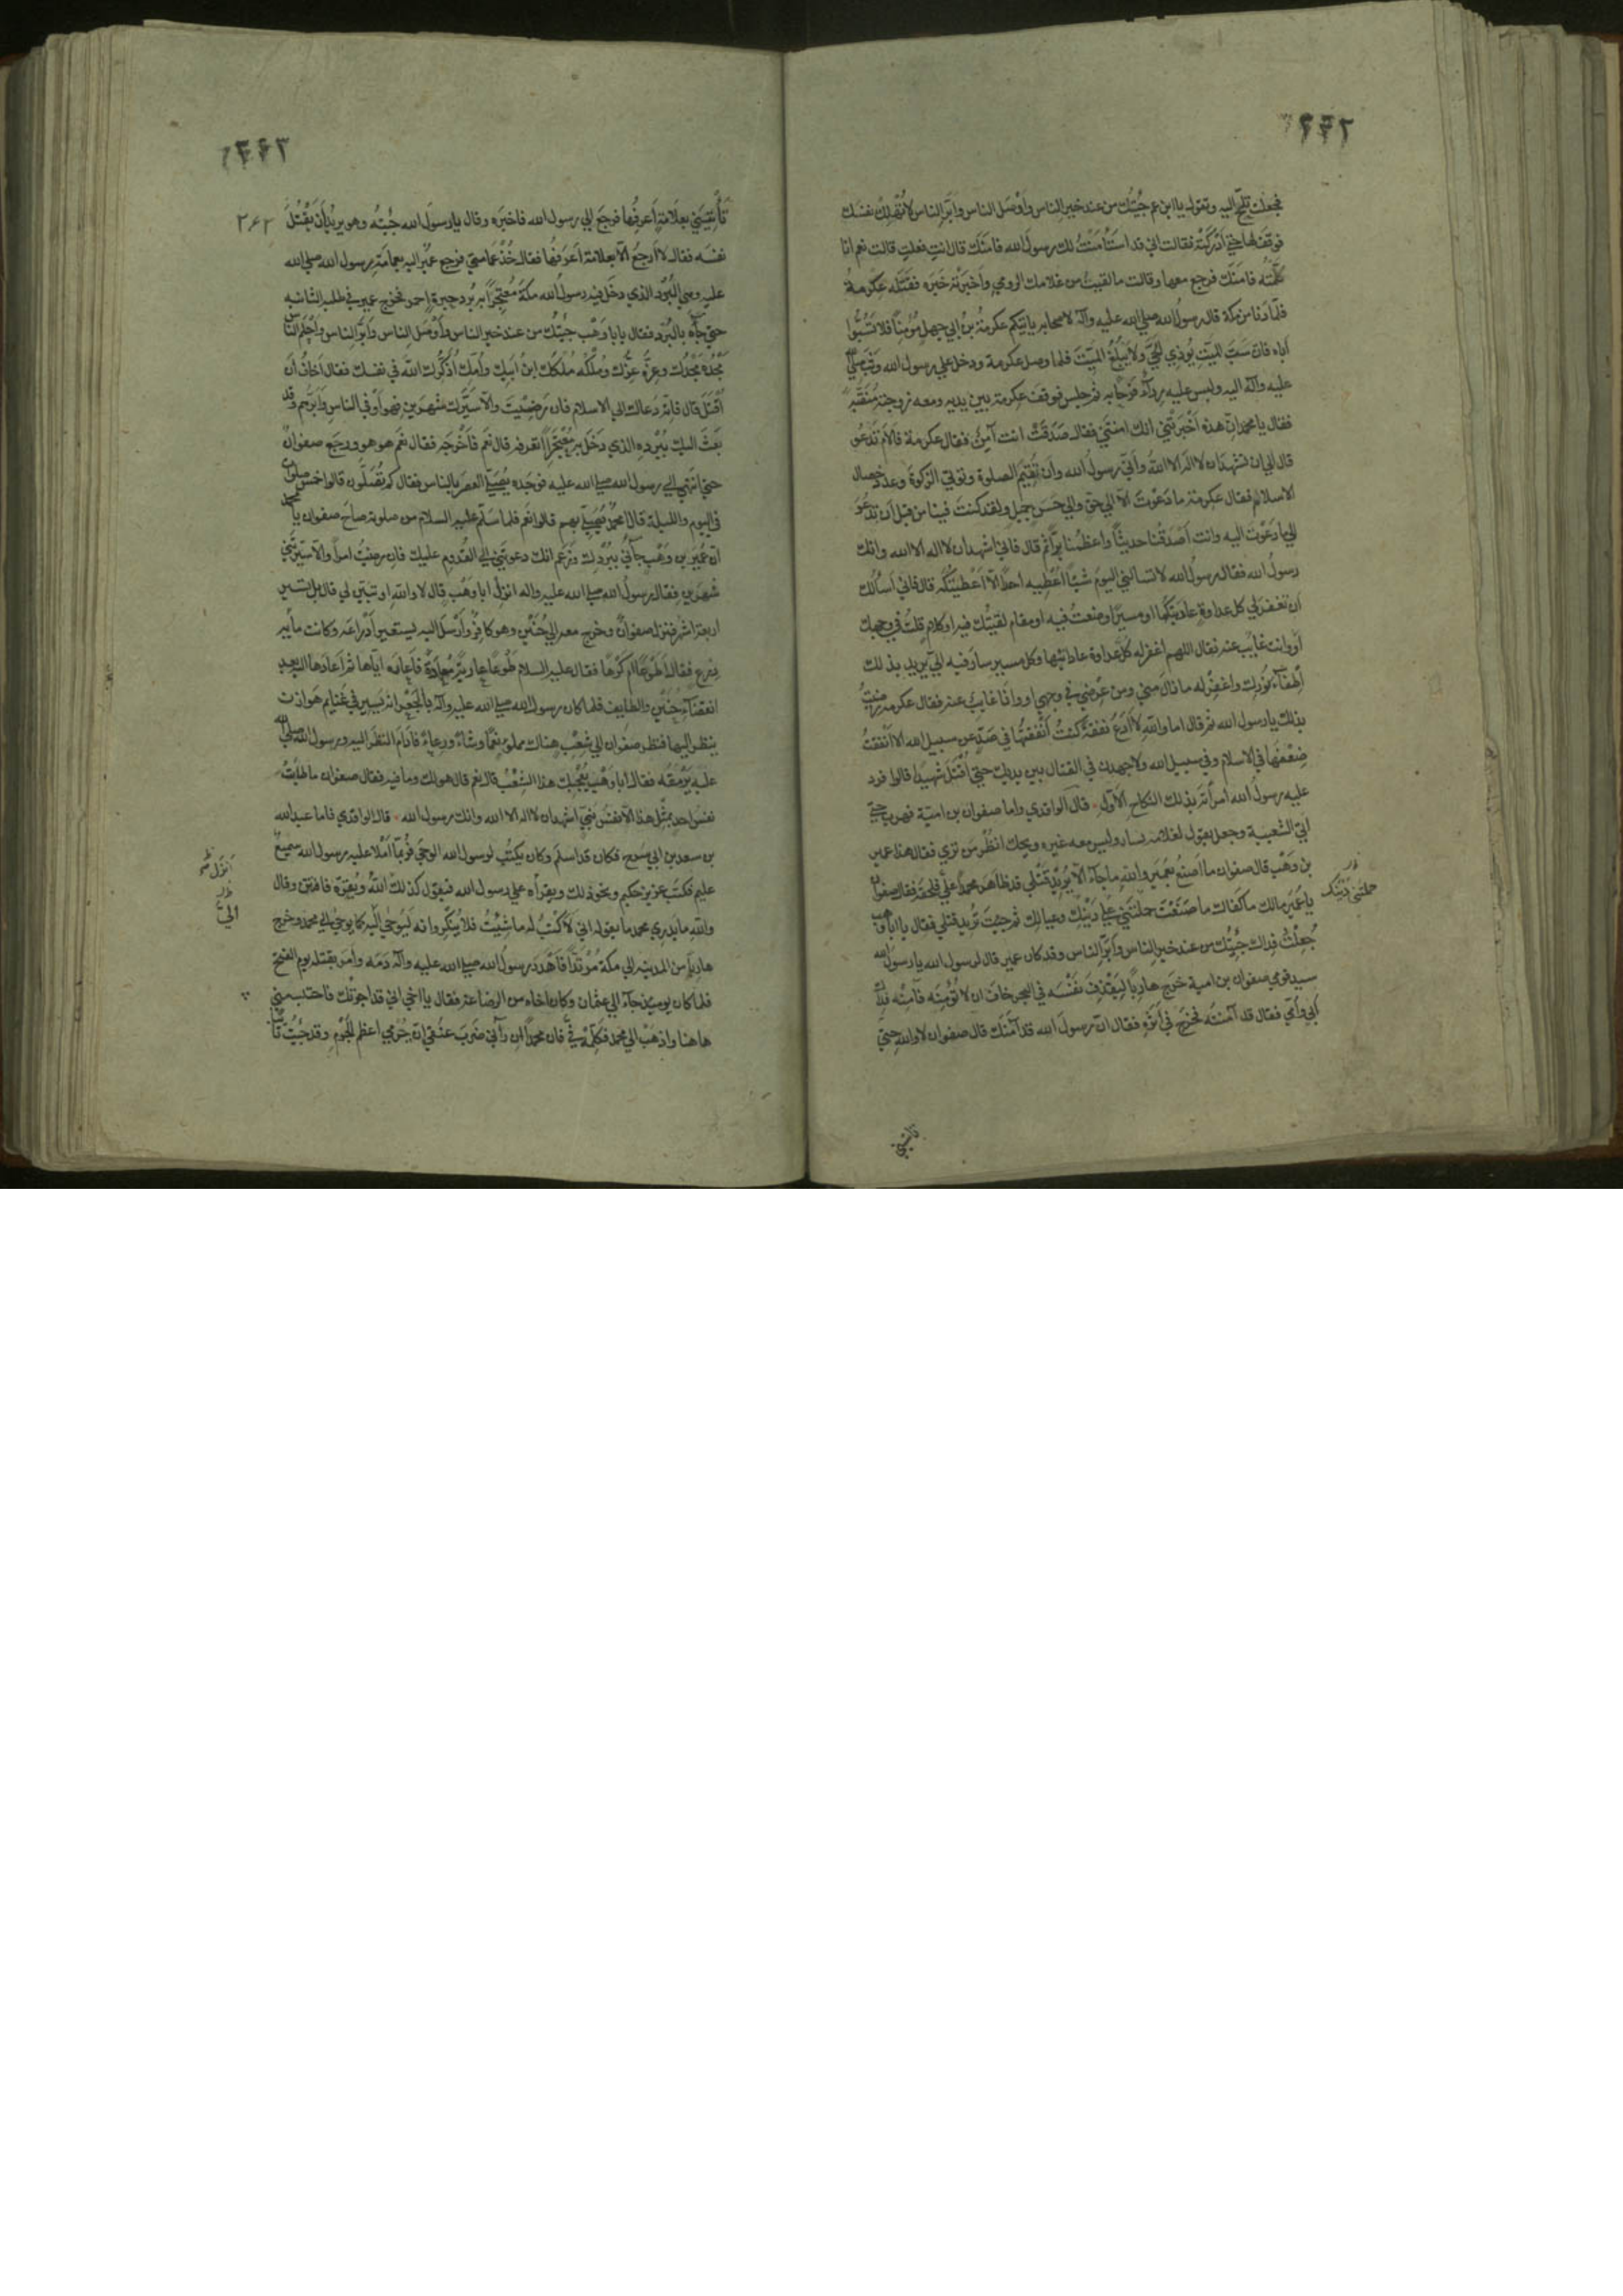 فجعلت تلح اليه وتقول يا ابن عم جئتك من عند خير الناس واوصل الناس وابر الناس لا تهلك نفسك
فوقف لها حتى ادركته فقالت اني قد استأمنت لك رسول الله فامنك قال انت فعلت قالت نعم انا
كلمته فامنك فرجع معها وقالت ما لقيت من غلامك الرومي واخبرته خبره فقتله عكرمة
فلما دنا من مكة قال رسول الله صلى الله عليه وآله لاصحابه يأتيكم عكرمة بن ابي جهل مؤمنا فلا تسبوا
اباه فان سب الميت يؤذي الحي ولا يبلغ الميت فلما وصل عكرمة ودخل على رسول الله وثب صلى الله
عليه وآله اليه وليس عليه رداء فرحا به ثم جلس فوقف عكرمة بين يديه ومعه زوجته منقبة
فقال يا محمد ان هذه اخبرتني انك امنتني فقال صدقت انت آمن فقال عكرمة فالام تدعو
قال الى ان تشهد ان لا اله الا الله واني رسول الله وان تقيم الصلوة وتؤتي الزكوة وعد خصال
الاسلام فقال عكرمة ما دعوت الا الى حق والى حسن جميل ولقد كنت فينا من قبل ان تدعو
الى ما دعوت اليه وانت اصدقنا حديثا واعظمنا برا ثم قال فاني اشهد ان لا اله الا الله وانك
رسول الله فقال رسول الله لا تسالني اليوم شيئا اعطيه احدا الا اعطيتكه قال فاني اسألك
ان تغفر لي كل عداوة عاديتكها او مسير اوضعت فيه او مقام لقيتك فيه او كلام قلته في وجهك
او وانت غائب عنه فقال اللهم اغفر له كل عداوة عادانيها وكل مسير سار فيه الي يريد بذلك
اطفاء نورك واغفر له ما نال مني ومن عرضي في وجهي او وانا غايب عنه فقال عكرمة رضيت
بذلك يا رسول الله ثم قال اما والله لا ادع نفقة كنت انفقتها في صد عن سبيل الله الا انفقت
ضعفها في الاسلام وفي سبيل الله ولاجهدن في القتال بين يديك حتى اقتل شهيدا قالوا فرد
عليه رسول الله امرأته بذلك النكاح الاول قال الواقدي واما صفوان بن امية فهرب حتى
اتى الشعيبة وجعل يقول لغلامه يسار وليس معه غيره ويحك انظر من ترى فقال هذا عمير
بن وهب قال صفوان ما اصنع بعمير والله ما جاء الا يريد قتلي قد ظاهر محمدا علي فلحقه فقال صفوان
يا عمير مالك ما كفاك ما صنعت حملتني على دينك وعيالك ثم جئت تريد قتلي فقال يا ابا وهب
جعلت فداك جئتك من عند خير الناس وابر الناس وقد كان عمير قال لرسول الله يا رسول الله
سيد قومي صفوان بن امية خرج هاربا ليقذف نفسه في البحر خاف ان لا تؤمنه فآمنه فداك
ابي وامي فقال قد آمنته فخرج في اثره فقال ان رسول الله قد آمنك قال صفوان لا والله حتى
حملتني دينك
تاتيني
۲۶۲
تأتيني بعلامة اعرفها فرجع الى رسول الله فاخبره وقال يا رسول الله جئته وهو يريد ان يقتل
نفسه فقال لا ارجع الا بعلامة اعرفها فقال خذ عمامتي فرجع عمير اليه بعمامة رسول الله صلى الله
عليه وهي البرد الذي دخل فيه رسول الله مكة معتجرا به برد حبرة احمر فخرج عمير في طلبه الثانيه
حتى جاءه بالبرد فقال يا با وهب جئتك من عند خير الناس واوصل الناس وابر الناس واحلم الناس
مجده مجدك وعزه عزك وملكه ملكك ابن ابيك وامك اذكرك الله في نفسك فقال اخاف ان
اقتل قال فانه دعاك الى الاسلام فان رضيت والا سيرك شهرين فهو اوفى الناس وابرهم وقد
بعث اليك ببرده الذي دخل به معتجرا اتعرفه قال نعم فاخرجه فقال نعم هو هو ورجع صفوان
حتى انتهى الى رسول الله صلى الله عليه فوجده يصلي العصر بالناس فقال كم تصلون قالوا خمس صلوات
في اليوم والليلة قال امحمد يصلي بهم قالوا نعم فلما سلم عليه السلام من صلوته صاح صفوان يا محمد
ان عمير بن وهب جاءني ببردك وزعم انك دعوتني الى القدوم عليك فان رضيت امرا والا سيرتني
شهرين فقال رسول الله صلى الله عليه واله انزل ابا وهب قال لا والله او تبين لي قال بل تسير
اربعة اشهر فنزل صفوان وخرج معه الى حنين وهو كافر وارسل اليه يستعير ادراعه وكانت مأيه
درع فقال اطوعا ام كرها فقال عليه السلام طوعا عارية مؤداة فاعاره اياها ثم اعادها اليه بعد
انقضاء حنين والطايف فلما كان رسول الله صلى الله عليه وآله بالجعرانة يسير في غنايم هوازن
ينظر اليها فنظر صفوان الى شعب هناك مملو نعما وشاء ورعاء فادام النظر اليه ورسول الله صلى الله
عليه يرمقه فقال ابا وهب يعجبك هذا الشعب قال نعم قال هو لك وما فيه فقال صفوان ما طابت
نفس احد بمثل هذا الا نفس نبي اشهد ان لا اله الا الله وانك رسول الله قال الواقدي فاما عبد الله
بن سعد بن ابي سرح فكان قد اسلم وكان يكتب لرسول الله الوحي فربما املا عليه رسول الله سميع
عليم فكتب عزيز حكيم ونحو ذلك ويقرأه على رسول الله فيقول كذلك الله ويقره فافتتن وقال
والله ما يدري محمد ما يقول اني لاكتب له ما شئت فلا ينكر وانه ليوحى اليه كما يوحى الى محمد وخرج
هاربا من المدينه الى مكة مرتدا فاهدر رسول الله صلى الله عليه وآله دمه وامر بقتله يوم الفتح
فلما كان يومئذ جاء الى عثمان وكان اخاه من الرضاعة فقال يا اخي اني قد اجرتك فاحتسبني
هاهنا واذهب الى محمد فكلمه في فان محمدا ان رآني ضرب عنقي ان جرمي اعظم الجرم وقد جئت تائبا
الي